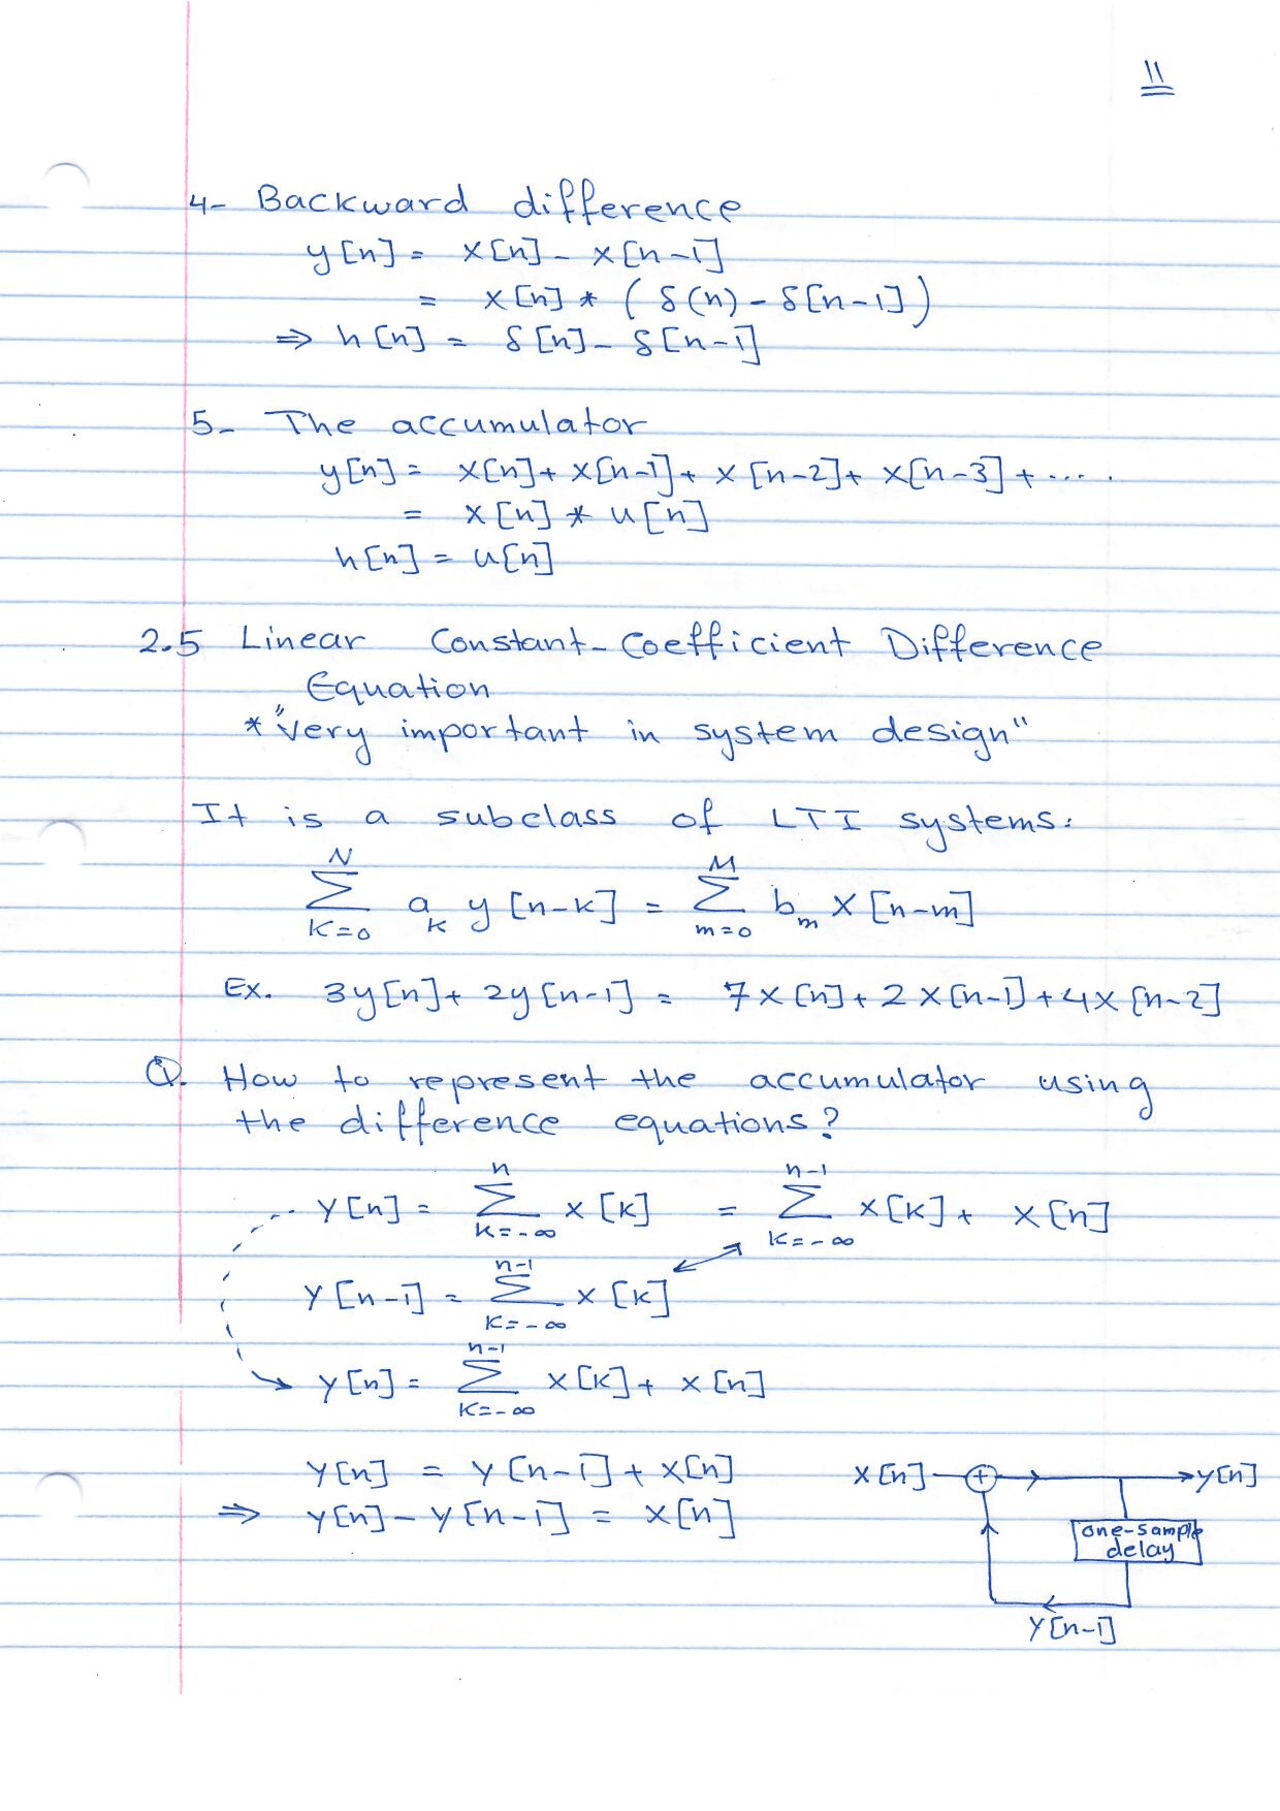 11
4- Backward difference
y[n] = x[n] - x[n-1]
= x[n] * (δ(n) - δ[n-1])
⇒ h[n] = δ[n] - δ[n-1]
5- The accumulator
y[n] = x[n] + x[n-1] + x[n-2] + x[n-3] + .....
= x[n] * u[n]
h[n] = u[n]
2.5 Linear Constant-Coefficient Difference
Equation
* "very important in system design"
It is a subclass of LTI systems:
∑_{k=0}^{N} a_k y[n-k] = ∑_{m=0}^{M} b_m x[n-m]
Ex. 3y[n] + 2y[n-1] = 7x[n] + 2x[n-1] + 4x[n-2]
Q. How to represent the accumulator using
the difference equations?
y[n] = ∑_{k=-∞}^{n} x[k] = ∑_{k=-∞}^{n-1} x[k] + x[n]
y[n-1] = ∑_{k=-∞}^{n-1} x[k]
y[n] = ∑_{k=-∞}^{n-1} x[k] + x[n]
y[n] = y[n-1] + x[n]
⇒ y[n] - y[n-1] = x[n]
x[n] + y[n]
one-sample
delay
y[n-1]